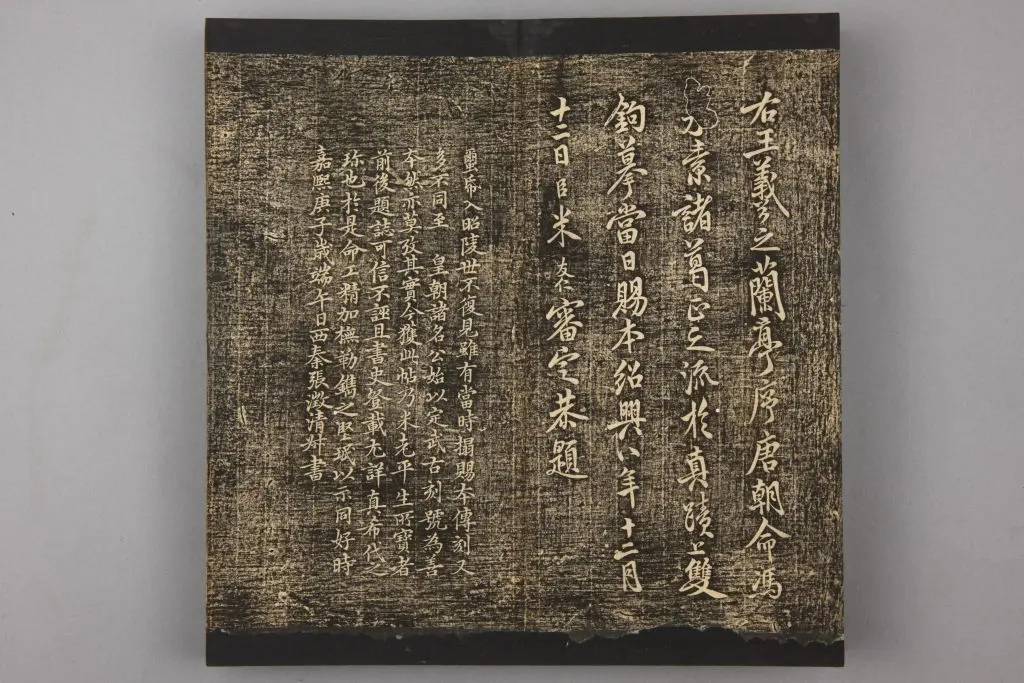 右王羲之蘭亭序唐朝命馮
承素諸葛正之流於真蹟上雙
鉤摹當日賜本紹興八年十二月
十二日臣米友仁審定恭題
帋入昭陵世不復見雖有當時搨賜夲傳刻又
多不同至 皇朝諸名公始以定武古刻號為善
夲然亦莫攷其實今獲此帖乃米老平生所寶者
前後題誌可信不誣且書史登載尤詳真希代之
珎也於是命工精加橅勒鐫之堅珉以示同好時
嘉熙庚子歲端午日西秦張澂清叔書